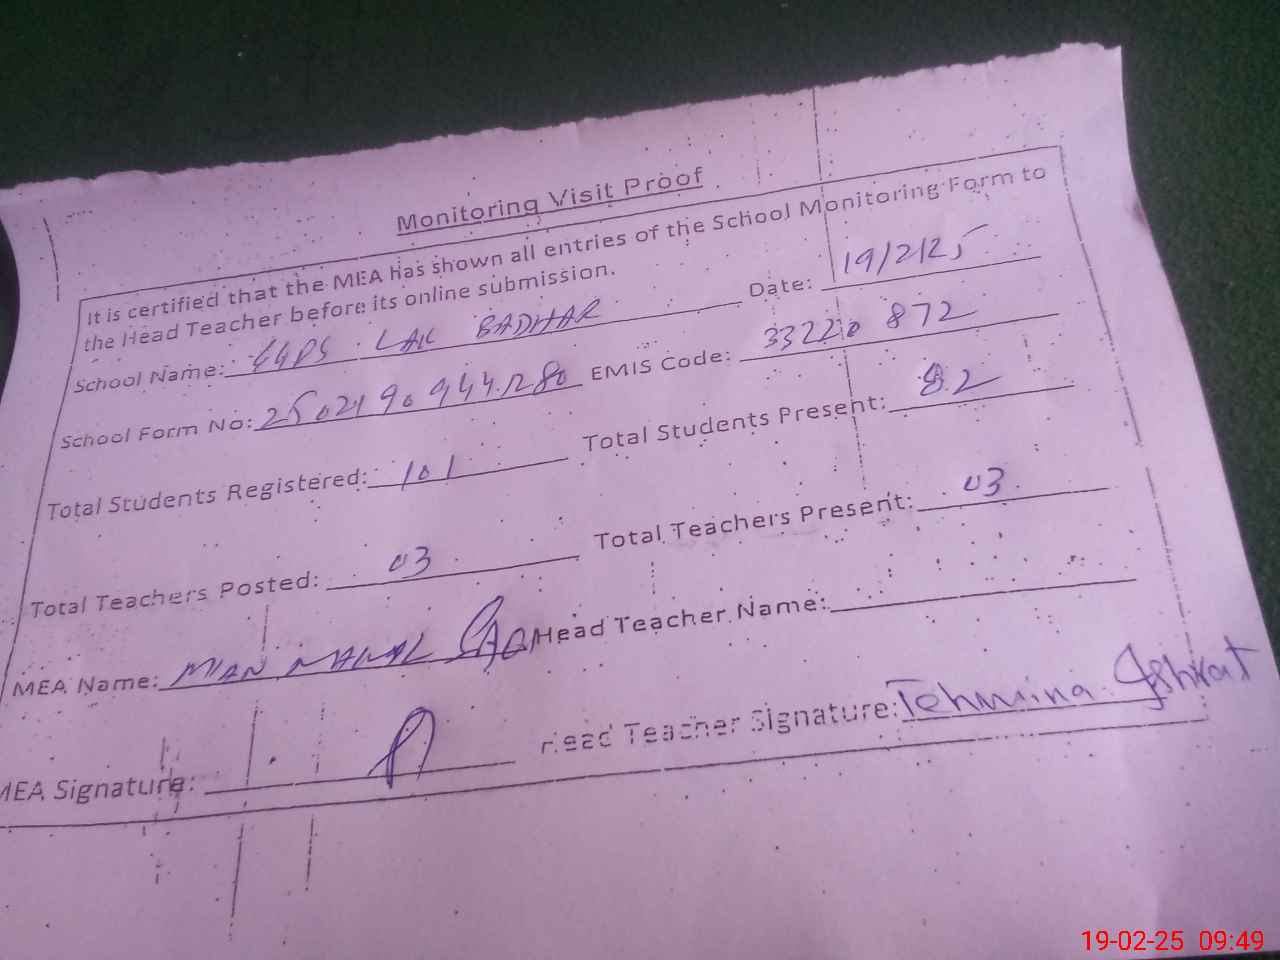 Monitoring Visit Proof
It is certified that the MEA has shown all entries of the School Monitoring Form to
the Head Teacher before its online submission.
Date: 19/2/25
School Name: GGPS LAK BADHAR
EMIS Code: 33220872
School Form No: 
Total Students Present: 82
Total Students Registered: 101
Total Teachers Present: 03
Total Teachers Posted: 03
Head Teacher Name:
MEA Name: MIAN
Head Teacher Signature: Tehmina
MEA Signature:
19-02-25 09:49